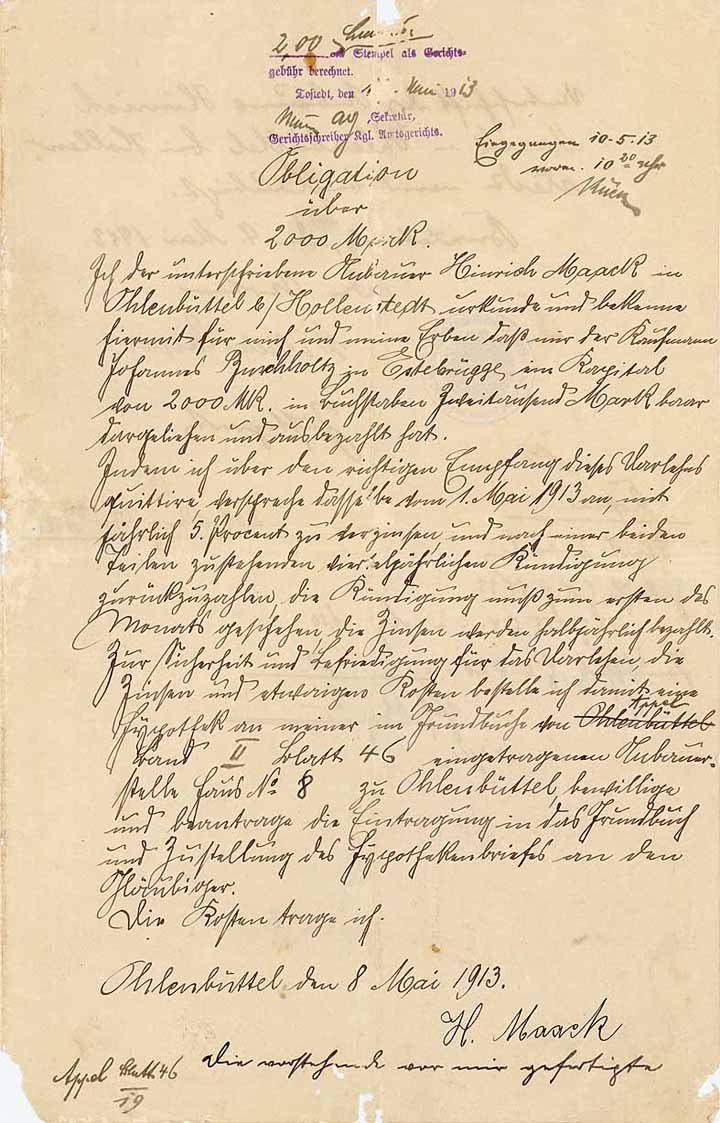 2,00
Stempel als Gerichts-
gebühr berechnet.
Tostedt, den Mai 1913
Sekretär,
Gerichtsschreiber Kgl. Amtsgerichts.
Eingegangen 10.5.13
vorm. 10 20 Uhr
Obligation
über
2000 Mark.
Ich der unterschriebene Anbauer Hinrich Maack in
Ohlenbüttel b/Hollenstedt urkunde und bekenne
hiermit für mich und meine Erben daß mir der Kaufmann
Johannes Buchholtz in Estebrügge ein Kapital
von 2000 Mk. in Buchstaben Zweitausend Mark baar
dargeliehen und ausbezahlt hat.
Indem ich über den richtigen Empfang dieses Darlehns
quittire, verspreche dasselbe vom 1. Mai 1913 an, mit
jährlich 5. Procent zu verzinsen und nach einer beiden
Teilen zustehenden vierteljährlichen Kündigung
zurückzuzahlen, die Kündigung muß zum ersten des
Monats geschehen, die Zinsen werden halbjährlich bezahlt.
Zur Sicherheit und Befriedigung für das Darlehen, die
Zinsen und etwaigen Kosten bestelle ich damit eine
Appel
Hypothek an meiner im Grundbuche von Ohlenbüttel
Band II Blatt 46 eingetragenen Anbauer-
stelle Haus No 8 zu Ohlenbüttel, bewillige
und beantrage die Eintragung in das Grundbuch
und Zustellung des Hypothekenbriefes an den
Gläubiger.
Die Kosten trage ich.
Ohlenbüttel den 8 Mai 1913.
H. Maack
Die vorstehende vor mir gefertigte
Appel Blatt 46
II
19